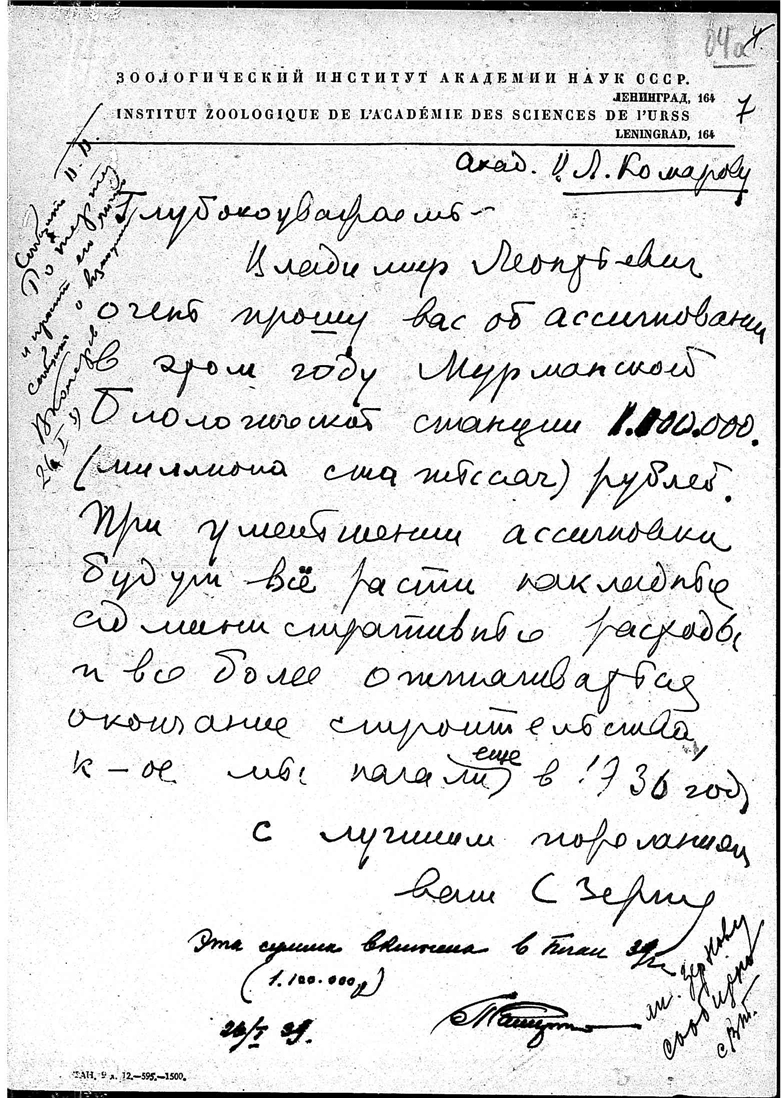 04а 4.
ЗООЛОГИЧЕСКИЙ ИНСТИТУТ АКАДЕМИИ НАУК СССР.
ЛЕНИНГРАД, 164
7
INSTITUT ZOOLOGIQUE DE L'ACADÉMIE DES SCIENCES DE l'URSS
LENINGRAD, 164
Акад. В. Л. Комарову
Глубокоуважаемый
Владимир Леонтьевич
очень прошу вас об ассигновании
в этом году Мурманской
биологической станции 1.100.000.
(миллиона ста тысяч) рублей.
При уменьшении ассигновки
будут всё расти накладные
административные расходы
и все более оттягивается
окончание строительства,
к-ое мы начали еще в 1936 году
с лучшими пожеланиями
ваш С Зернов
Эта сумма включена в план 39 г.
(1.100.000 р)
26/I 39.
сообщить
и просит его
сообщить о
В Комаров
26 I 39
Зернову
сообщено
ТАН. 9 л. 12.—595.—1500.